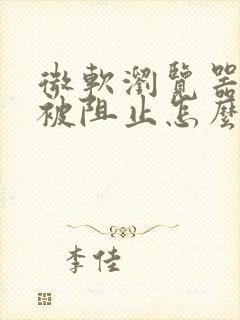 微軟瀏覽器
被阻止怎麼
李佳